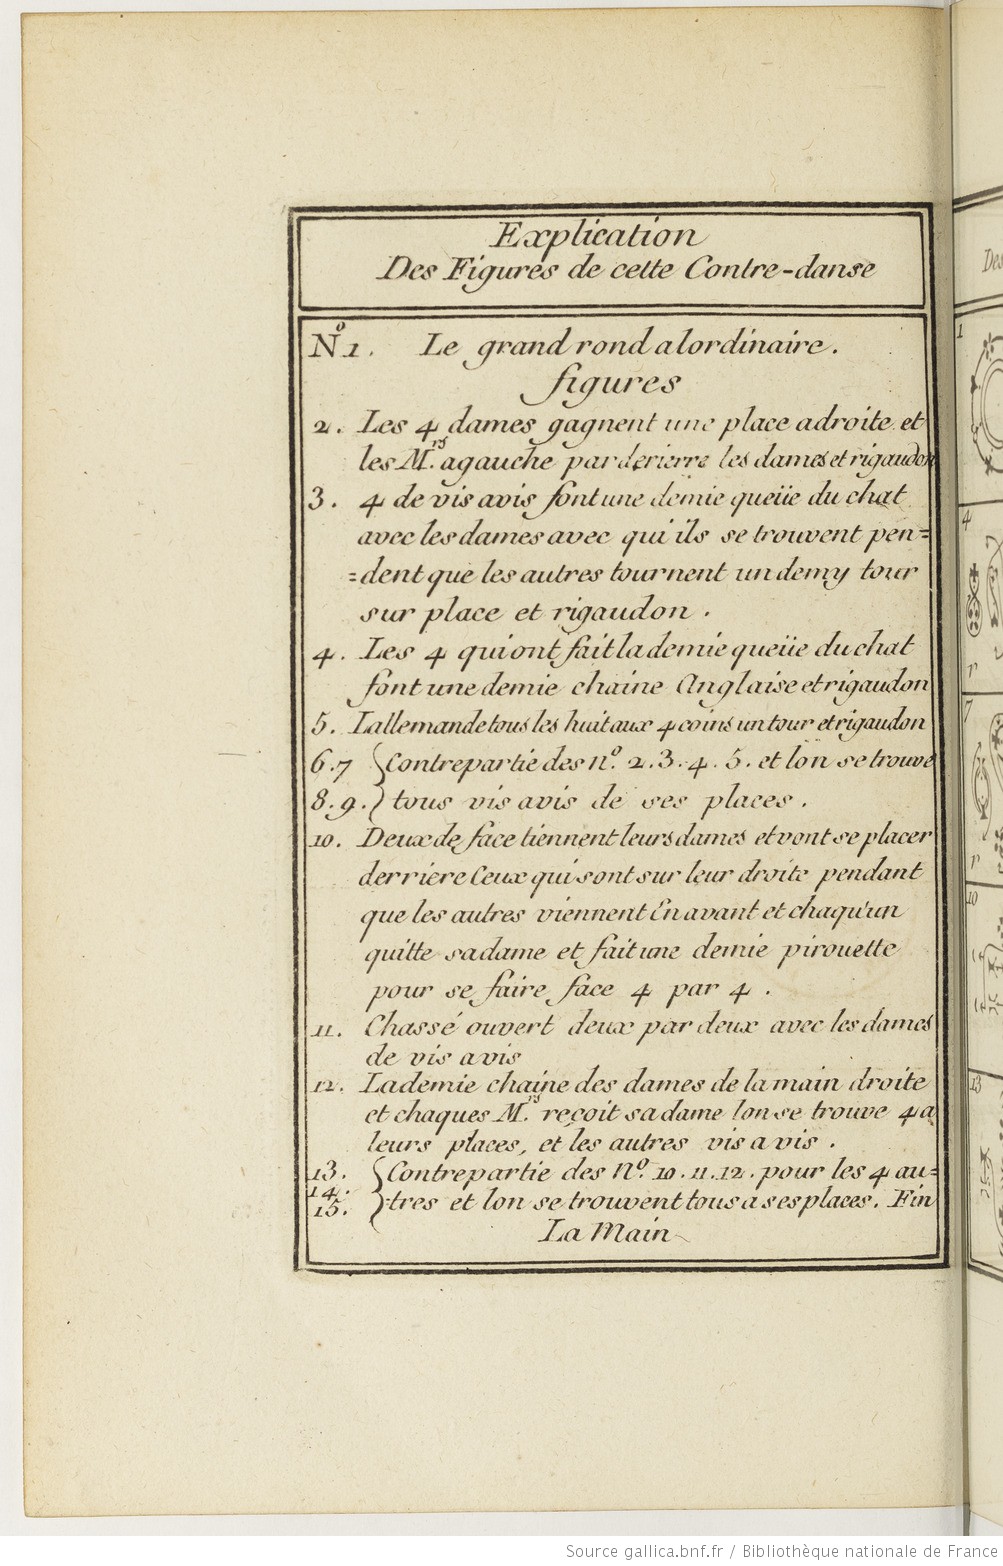 Explication
Des Figures de cette Contre-danse
Nº 1. Le grand rond alordinaire.
figures
2. Les 4 dames gagnent une place adroite et
les M.rs agauche par derierre les dames et rigaudon
3. 4 de vis avis font une demie queüe du chat
avec les dames avec qui ils se trouvent pen=
=dent que les autres tournent un demy tour
sur place et rigaudon.
4. Les 4 qui ont fait la demie queüe du chat
font une demie chaine Anglaise et rigaudon
5. Lallemande tous les huit aux 4 coins un tour et rigaudon
6.7 { Contrepartie des nº. 2.3.4.5. et lon se trouve
8.9. } tous vis avis de ses places.
10. Deux de face tiennent leurs dames et vont se placer
derriere Ceux qui sont sur leur droite pendant
que les autres viennent En avant et chaqu'un
quitte sa dame et fait une demie pirouette
pour se faire face 4 par 4.
11. Chassé ouvert deux par deux avec les dames
de vis avis
12. La demie chaine des dames de la main droite
et chaques M.rs reçoit sa dame lon se trouve 4 a
leurs places, et les autres vis a vis.
13. { Contrepartie des nº. 10.11.12. pour les 4 au=
14.
15. } tres et lon se trouvent tous a ses places. Fin
La Main
Des
1
4
7
10
13
Source gallica.bnf.fr / Bibliothèque nationale de France